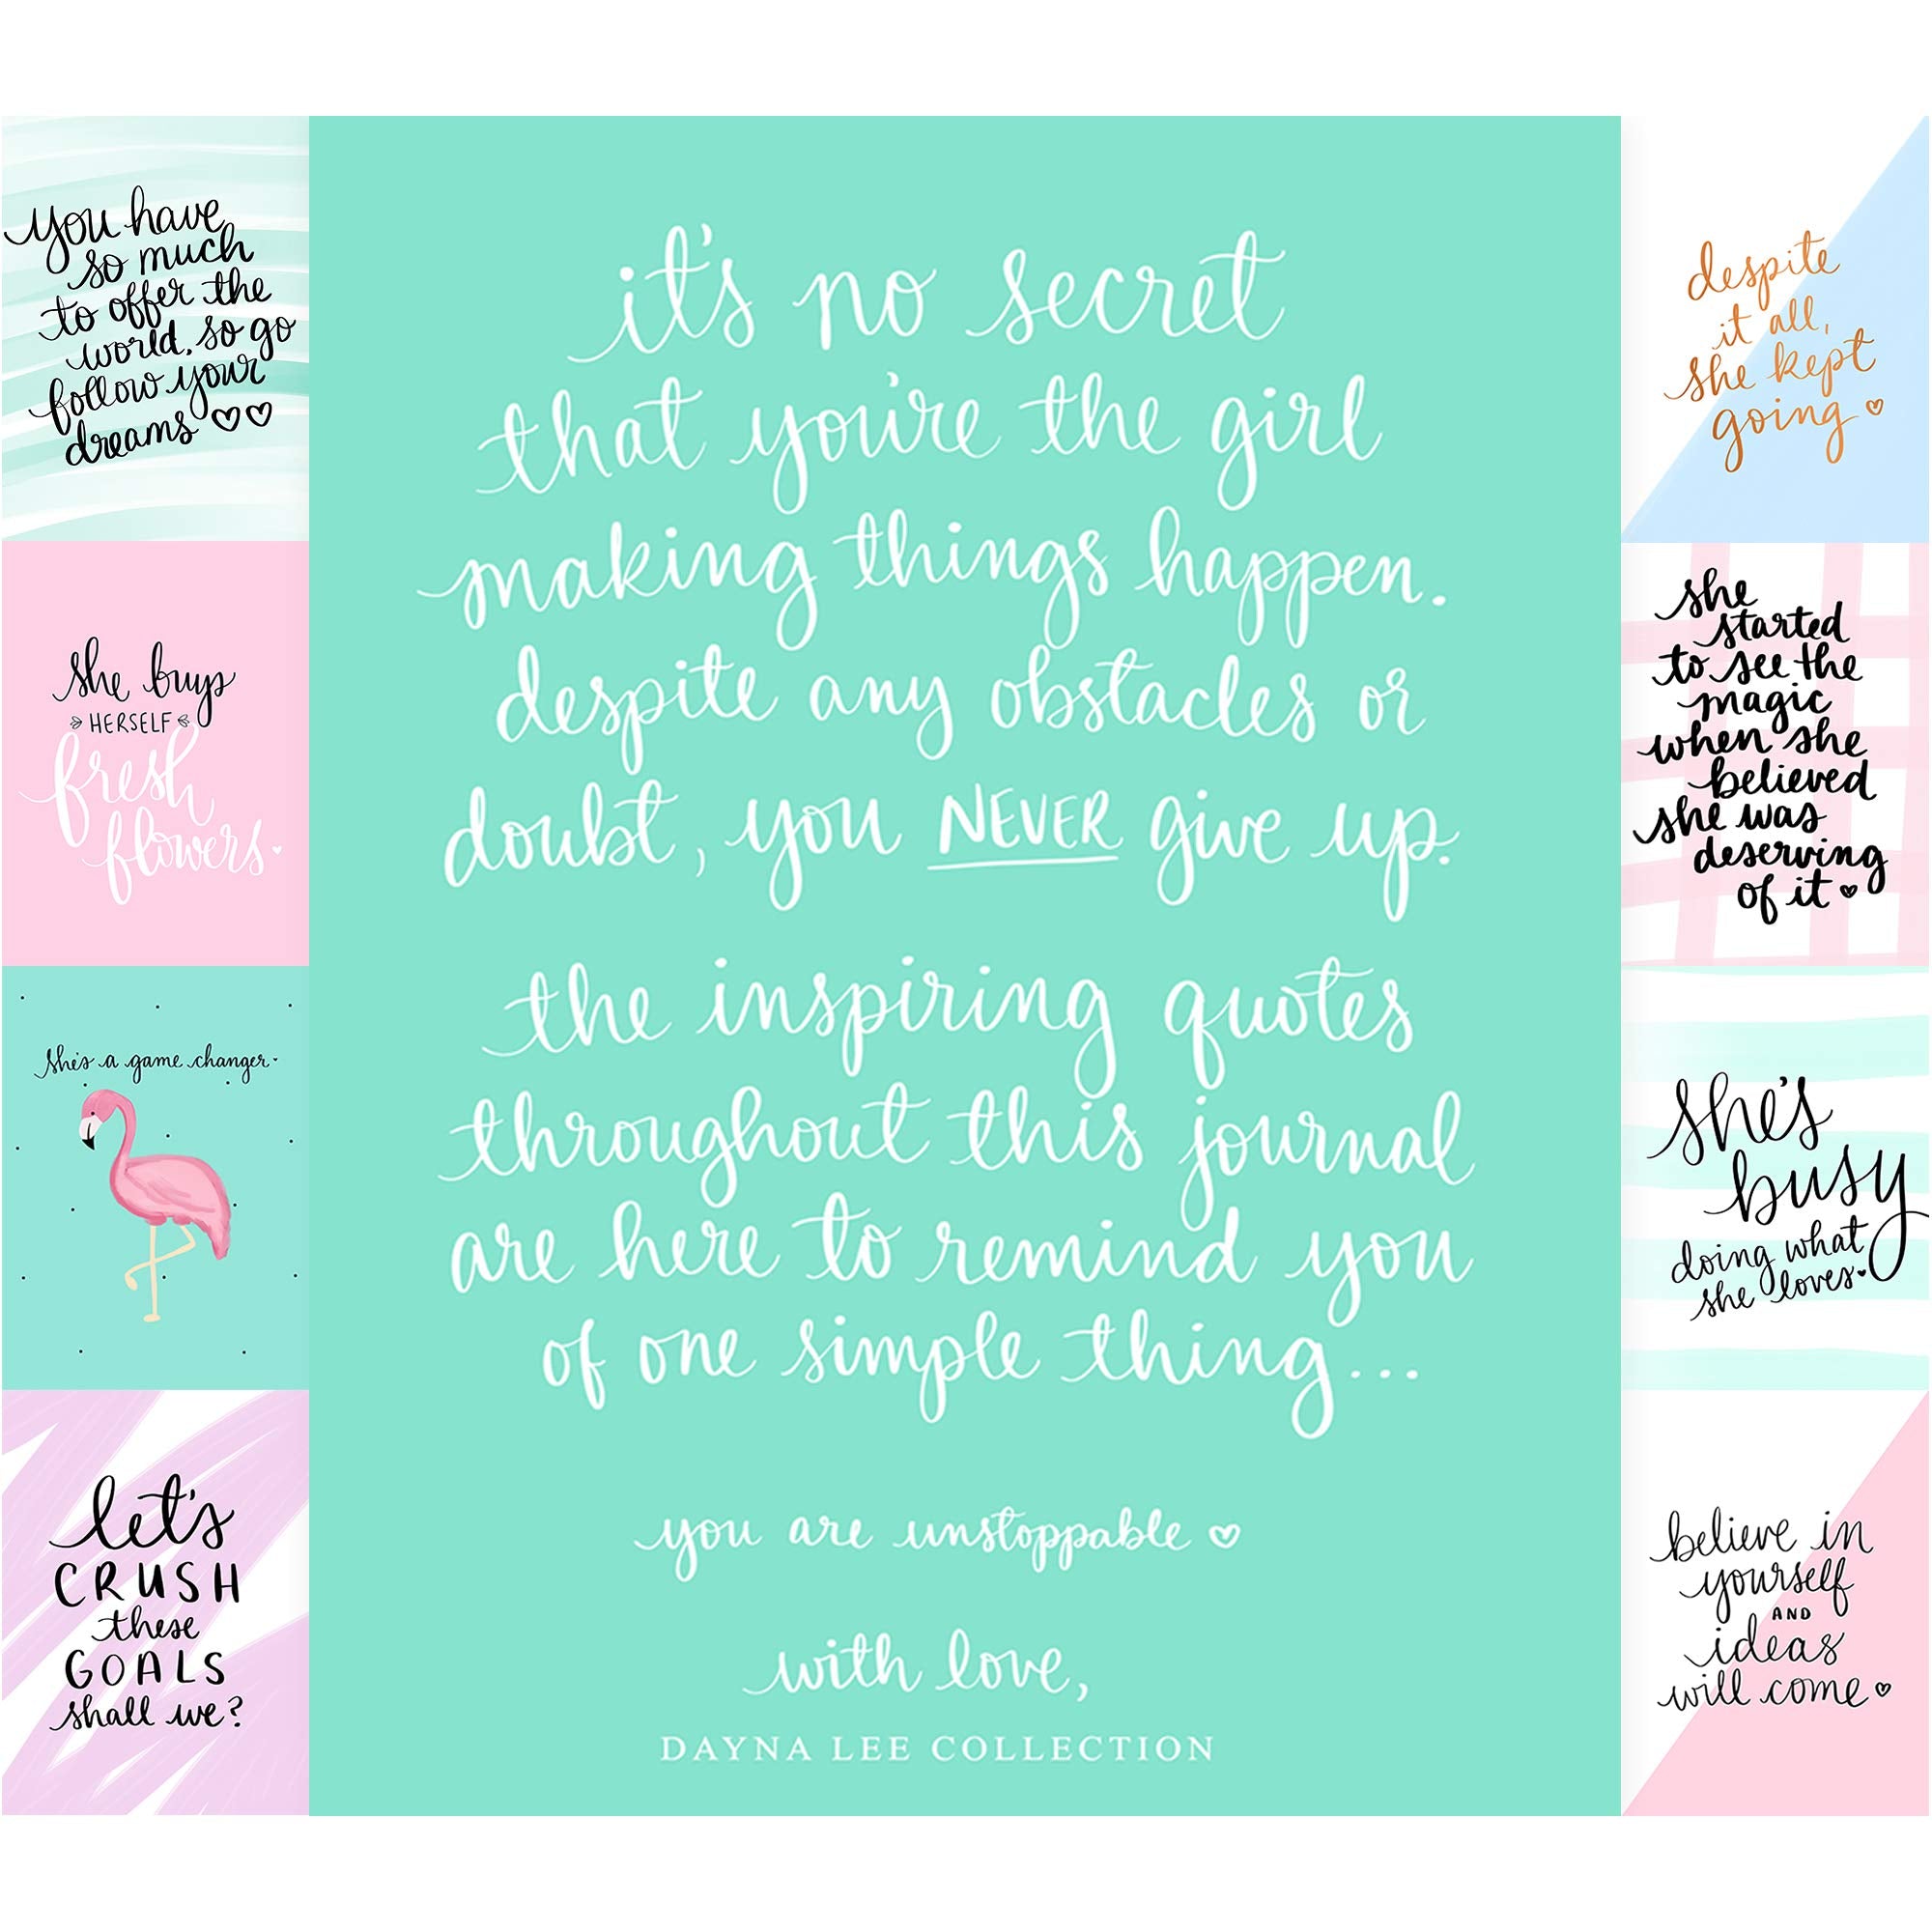 you have
so much
to offer the
world, so go
follow your
dreams
she buys
HERSELF
fresh
flowers.
she's a game changer.
let's
CRUSH
these
GOALS
shall we?
it's no secret
that you're the girl
making things happen.
despite any obstacles or
doubt, you NEVER give up.
the inspiring quotes
throughout this journal
are here to remind you
of one simple thing...
you are unstoppable
with love,
DAYNA LEE COLLECTION
despite
it all,
she kept
going
she
started
to see the
magic
when she
believed
she was
deserving
of it
she's
busy
doing what
she loves.
believe in
yourself
AND
ideas
will come